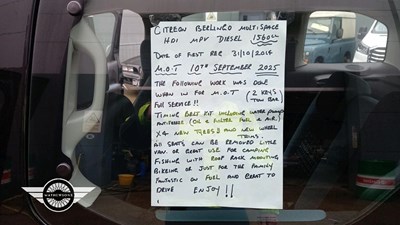 CITROEN BERLINGO MULTISPACE
HDI MPV DIESEL 1560cc
DATE OF FIRST REG 31/10/2014
M.O.T 10TH SEPTEMBER 2025
THE FOLLOWING WORK WAS DONE
WHEN IN FOR M.O.T (2 KEYS)
FULL SERVICE!! TOW BAR
TIMING BELT KIT INCLUDING WATER PUMP
ANTIFREEZE (OIL & FILTER FUEL & AIR)
X4 NEW TYRES AND NEW WHEEL
TRIMS.
ALL SEATS CAN BE REMOVED LITTLE
VAN OR GREAT USE FOR CAMPING
FISHING WITH ROOF RACK MOUNTING
BIKEING OR JUST FOR THE FAMILY
FANTASTIC ON FUEL AND GREAT TO
DRIVE ENJOY!!
MATHEWSONS